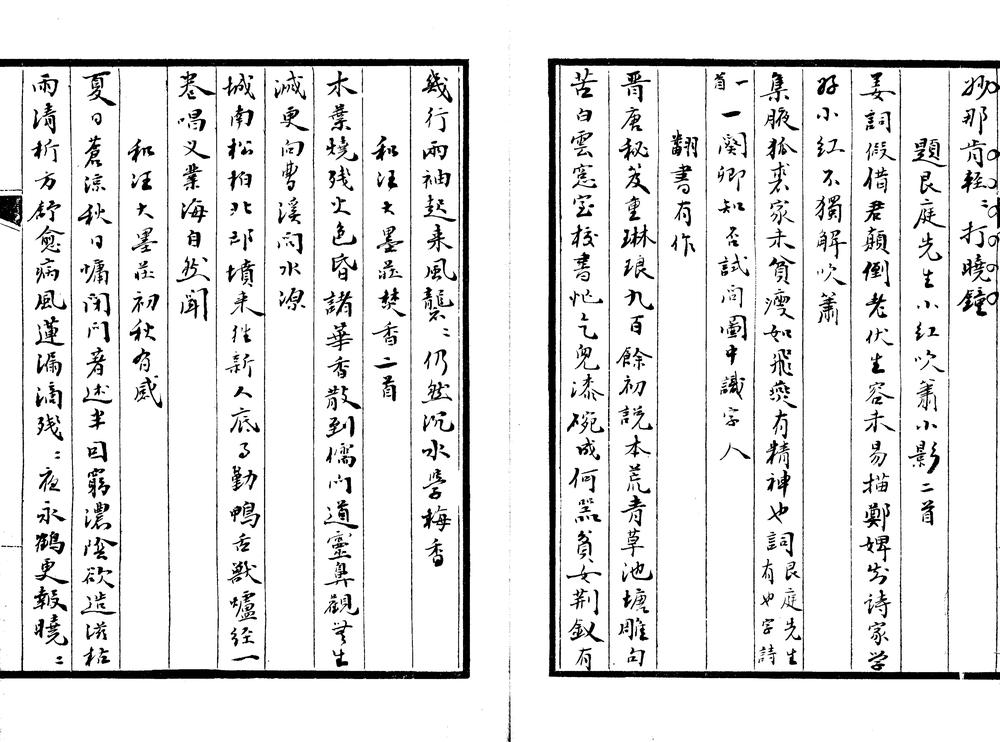 妙那肯輕〻打曉鐘
題艮庭先生小紅吹簫小影二首
姜詞假借君顛倒老伏生容未易描鄭婢當詩家学
好小紅不獨解吹簫
集腋狐裘家未貧瘦如飛燕有精神也詞艮庭先生有也字詩
一首一闋卿知否試問圖中識字人
翻書有作
晋唐秘笈重琳琅九百餘初説本荒青草池塘雕句
苦白雲窻室校書忙乞兒漆碗成何器貧女荆釵有
幾行兩袖起来風襲〻仍然沉水學梅香
和汪大墨莊焚香二首
木葉燒残火色昏諸華香散到儒門道靈鼻觀無生
滅更向曹溪问水源
城南松柏北邙墳来往新人底事勤鴨舌獸爐经一
卷唱义業海自然聞
和汪大墨莊初秋有感
夏日蒼涼秋日慵闭门著述半囙窮濃陰欲造滋枯
雨清析方舒愈病風蓮漏滴残〻夜永鶴更報曉〻